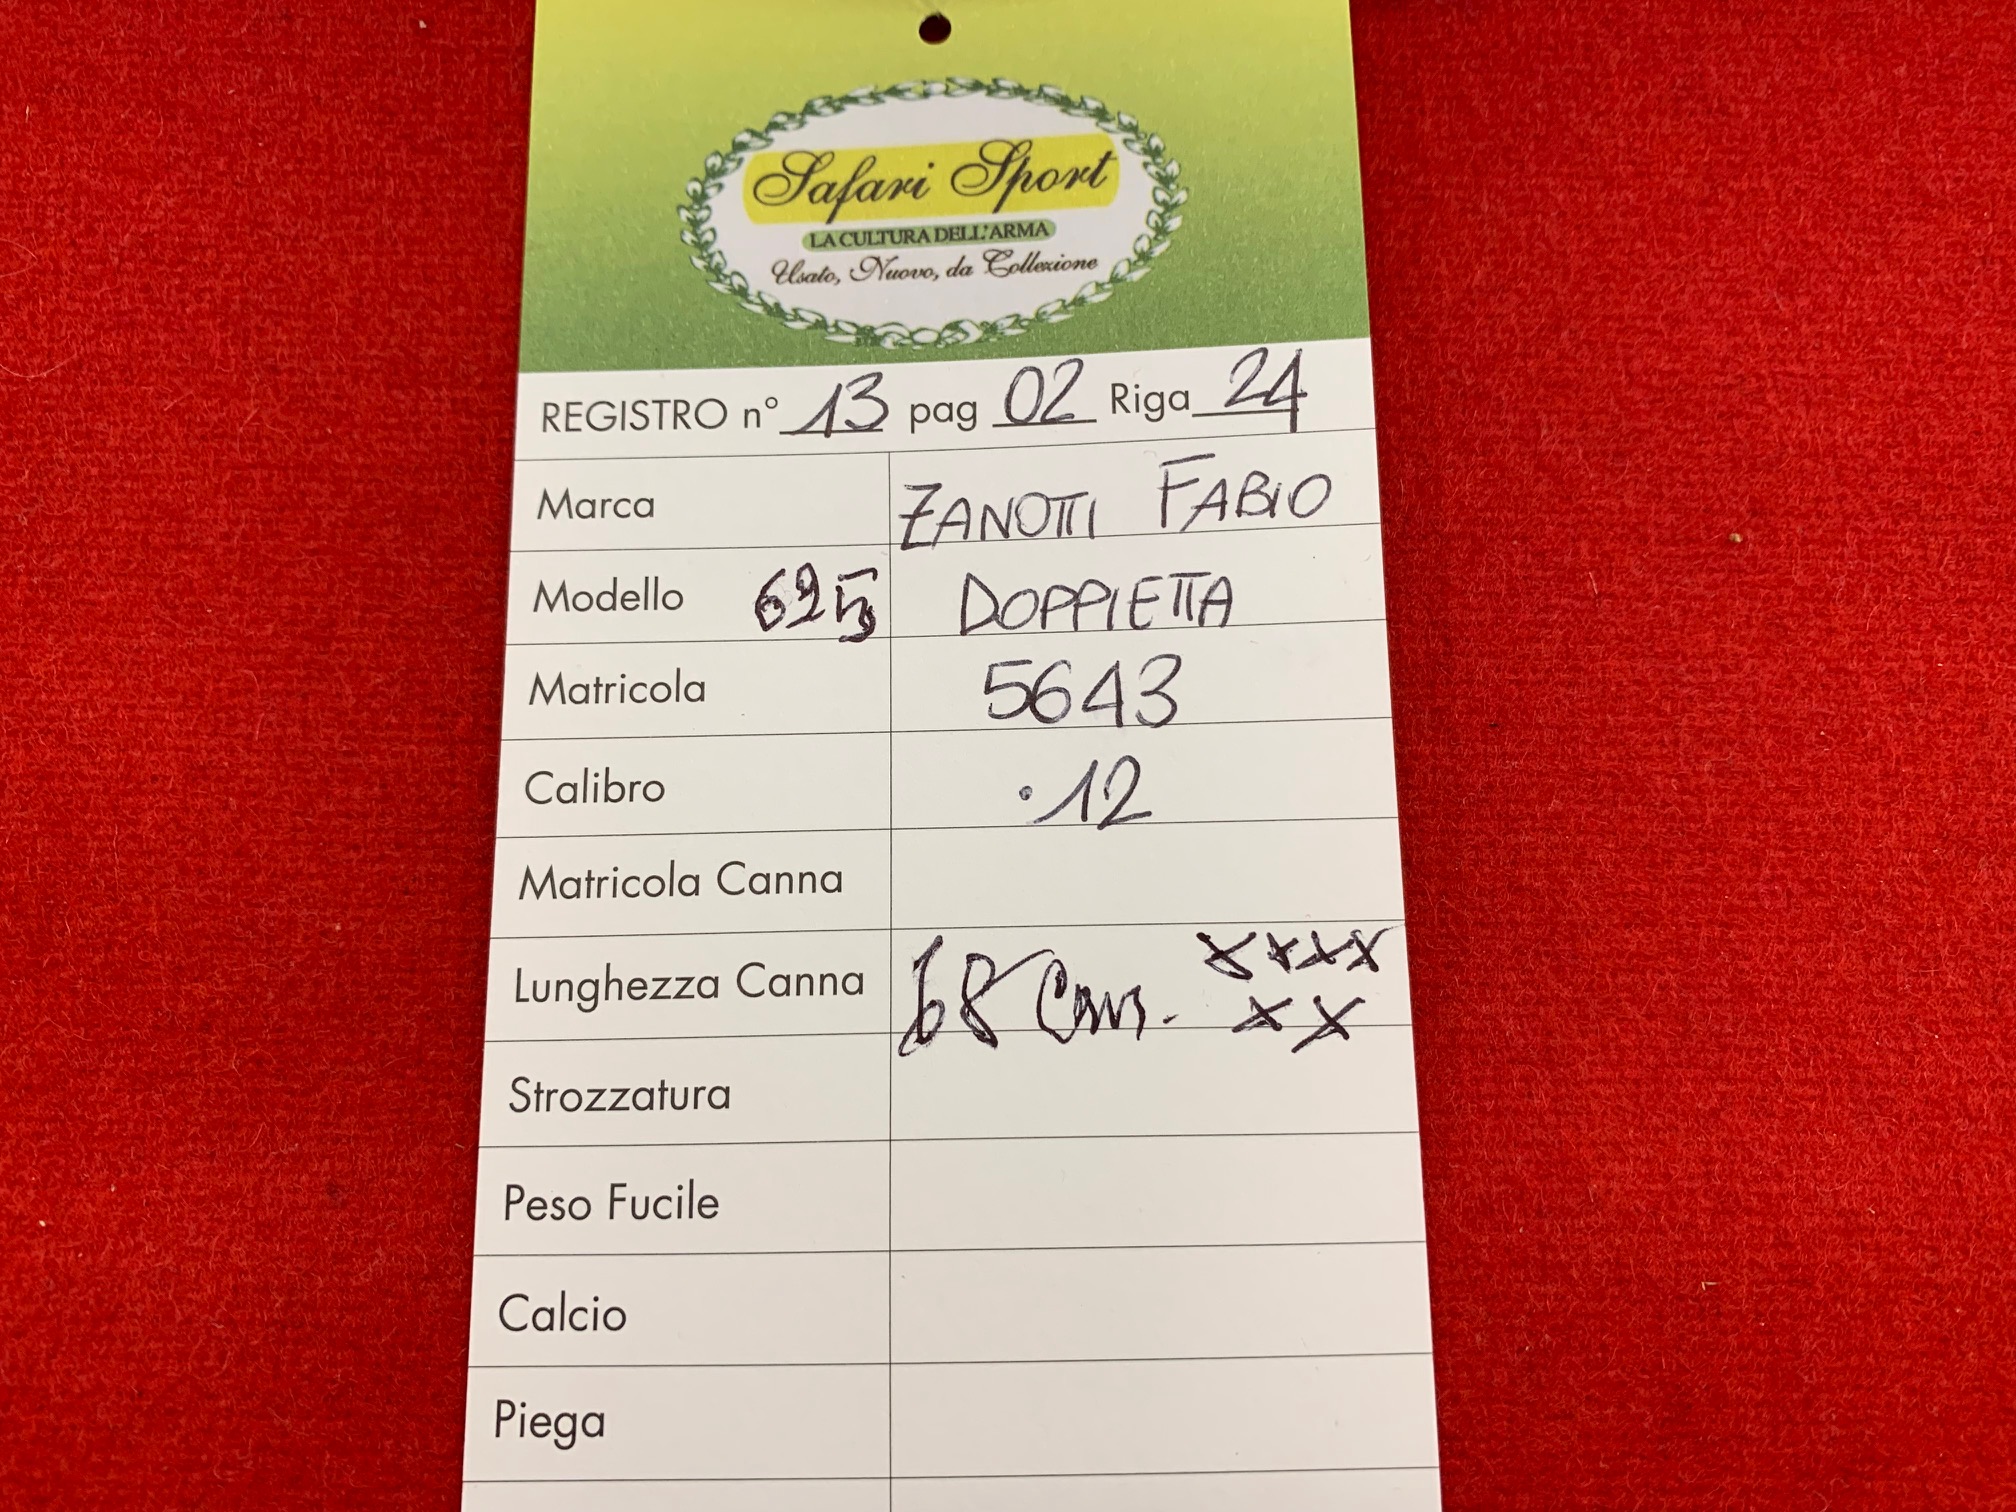 Safari Sport
LA CULTURA DELL'ARMA
Usato, Nuovo, da Collezione
REGISTRO n° 13 pag 02 Riga 24
Marca ZANOTTI FABIO
Modello 625 DOPPIETTA
Matricola 5643
Calibro .12
Matricola Canna
Lunghezza Canna 68 Cms. xxxx
xx
Strozzatura
Peso Fucile
Calcio
Piega